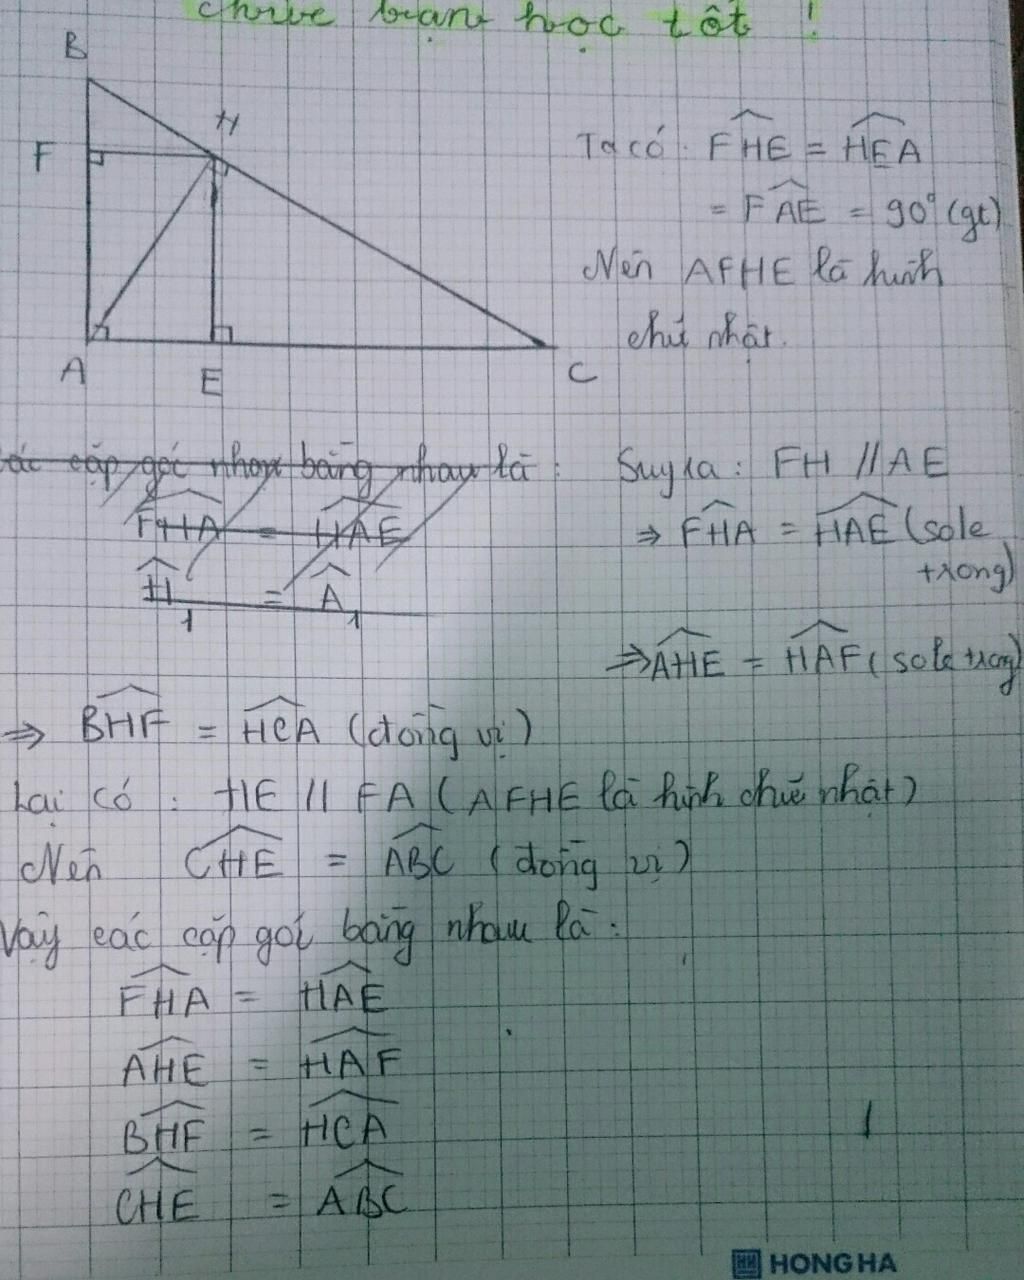 chúc bạn học tốt !
B
H
F
A
E
C
Ta có : FHE = HEA
= FAE = 90° (gt)
Nên AFHE là hình
chữ nhật.
các cặp góc nhọn bằng nhau là :
FHA = HAE
H1 = A1
Suy ra : FH // AE
⇒ FHA = HAE (sole
trong)
⇒ AHE = HAF ( sole trong)
⇒ BHF = HCA (đồng vị)
Lại có : HE // FA ( AFHE là hình chữ nhật)
Nên CHE = ABC ( đồng vị )
Vậy các cặp góc bằng nhau là :
FHA = HAE
AHE = HAF
BHF = HCA
CHE = ABC
HONG HA